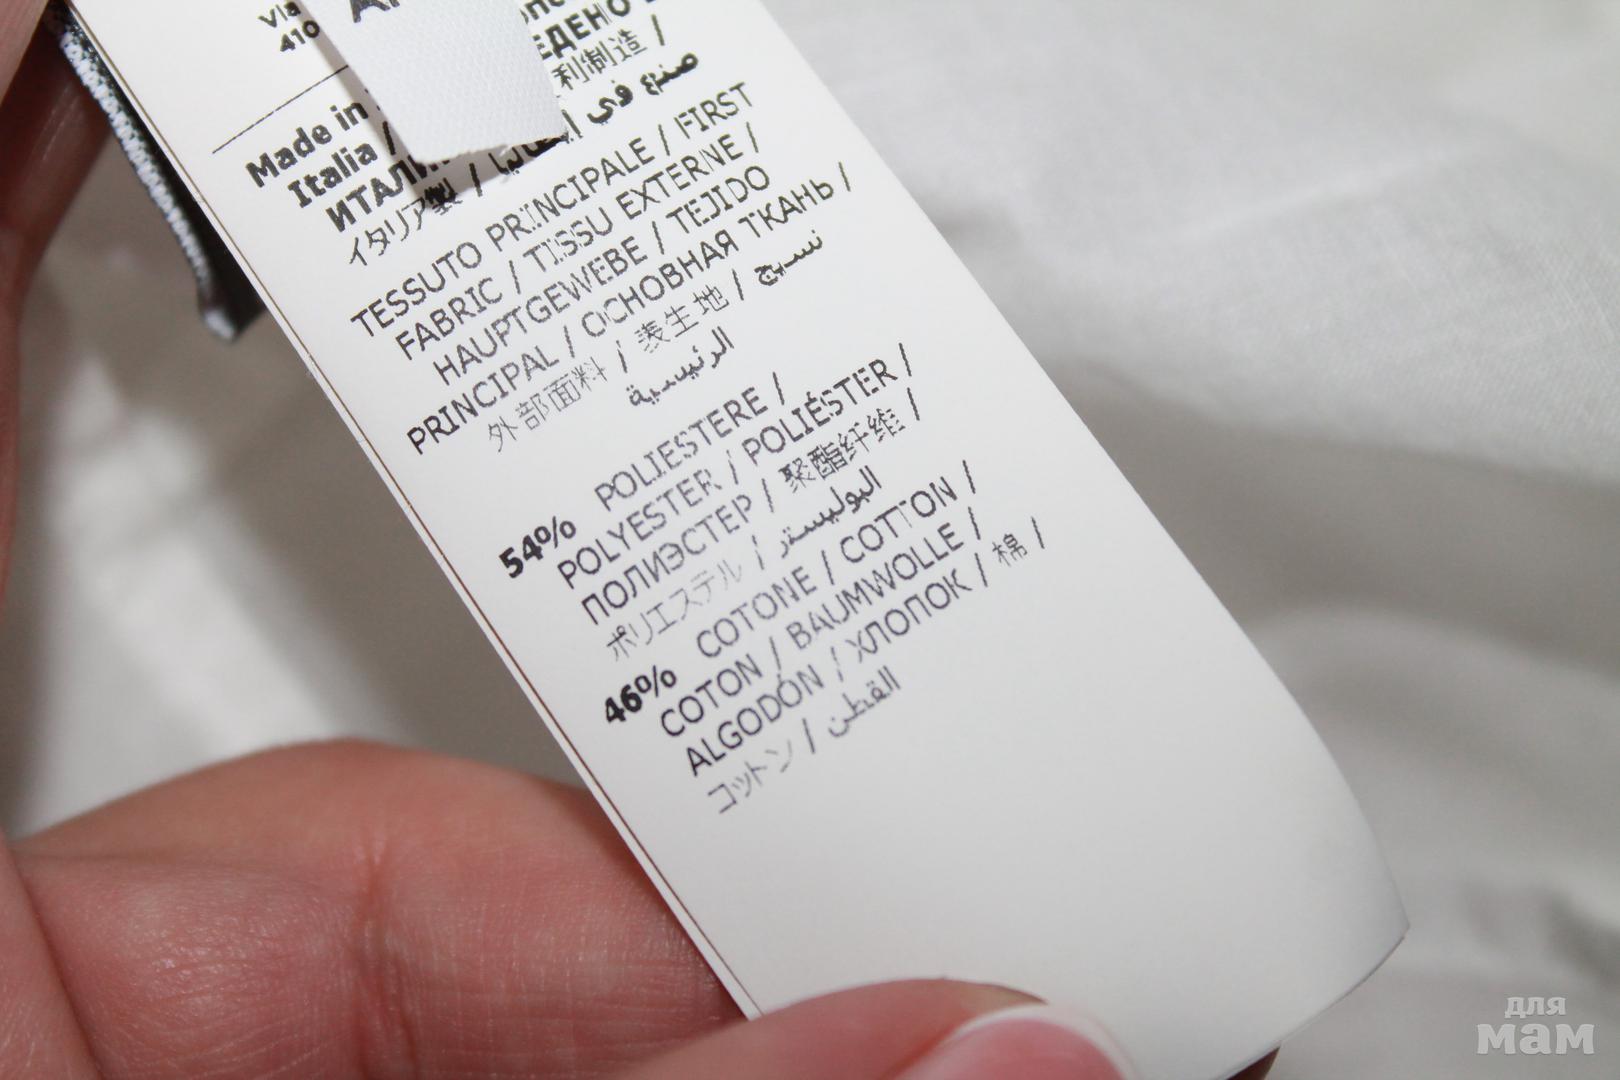 Via
410
Made in
Italia /
ЕДЕНО
利制造 /
ИТАЛИ
صنع في
イタリア製 /
TESSUTO PRINCIPALE / FIRST
FABRIC / TISSU EXTERNE /
HAUPTGEWEBE / TEJIDO
PRINCIPAL / ОСНОВНАЯ ТКАНЬ /
外部面料 / 表生地 / نسيج
الرئيسية
54% POLIESTERE /
POLYESTER / POLIÉSTER /
ПОЛИЭСТЕР / 聚酯纤维 /
ポリエステル / البوليستر
46% COTONE / COTTON /
COTON / BAUMWOLLE /
ALGODÓN / ХЛОПОК / 棉 /
コットン / القطن
для
мам